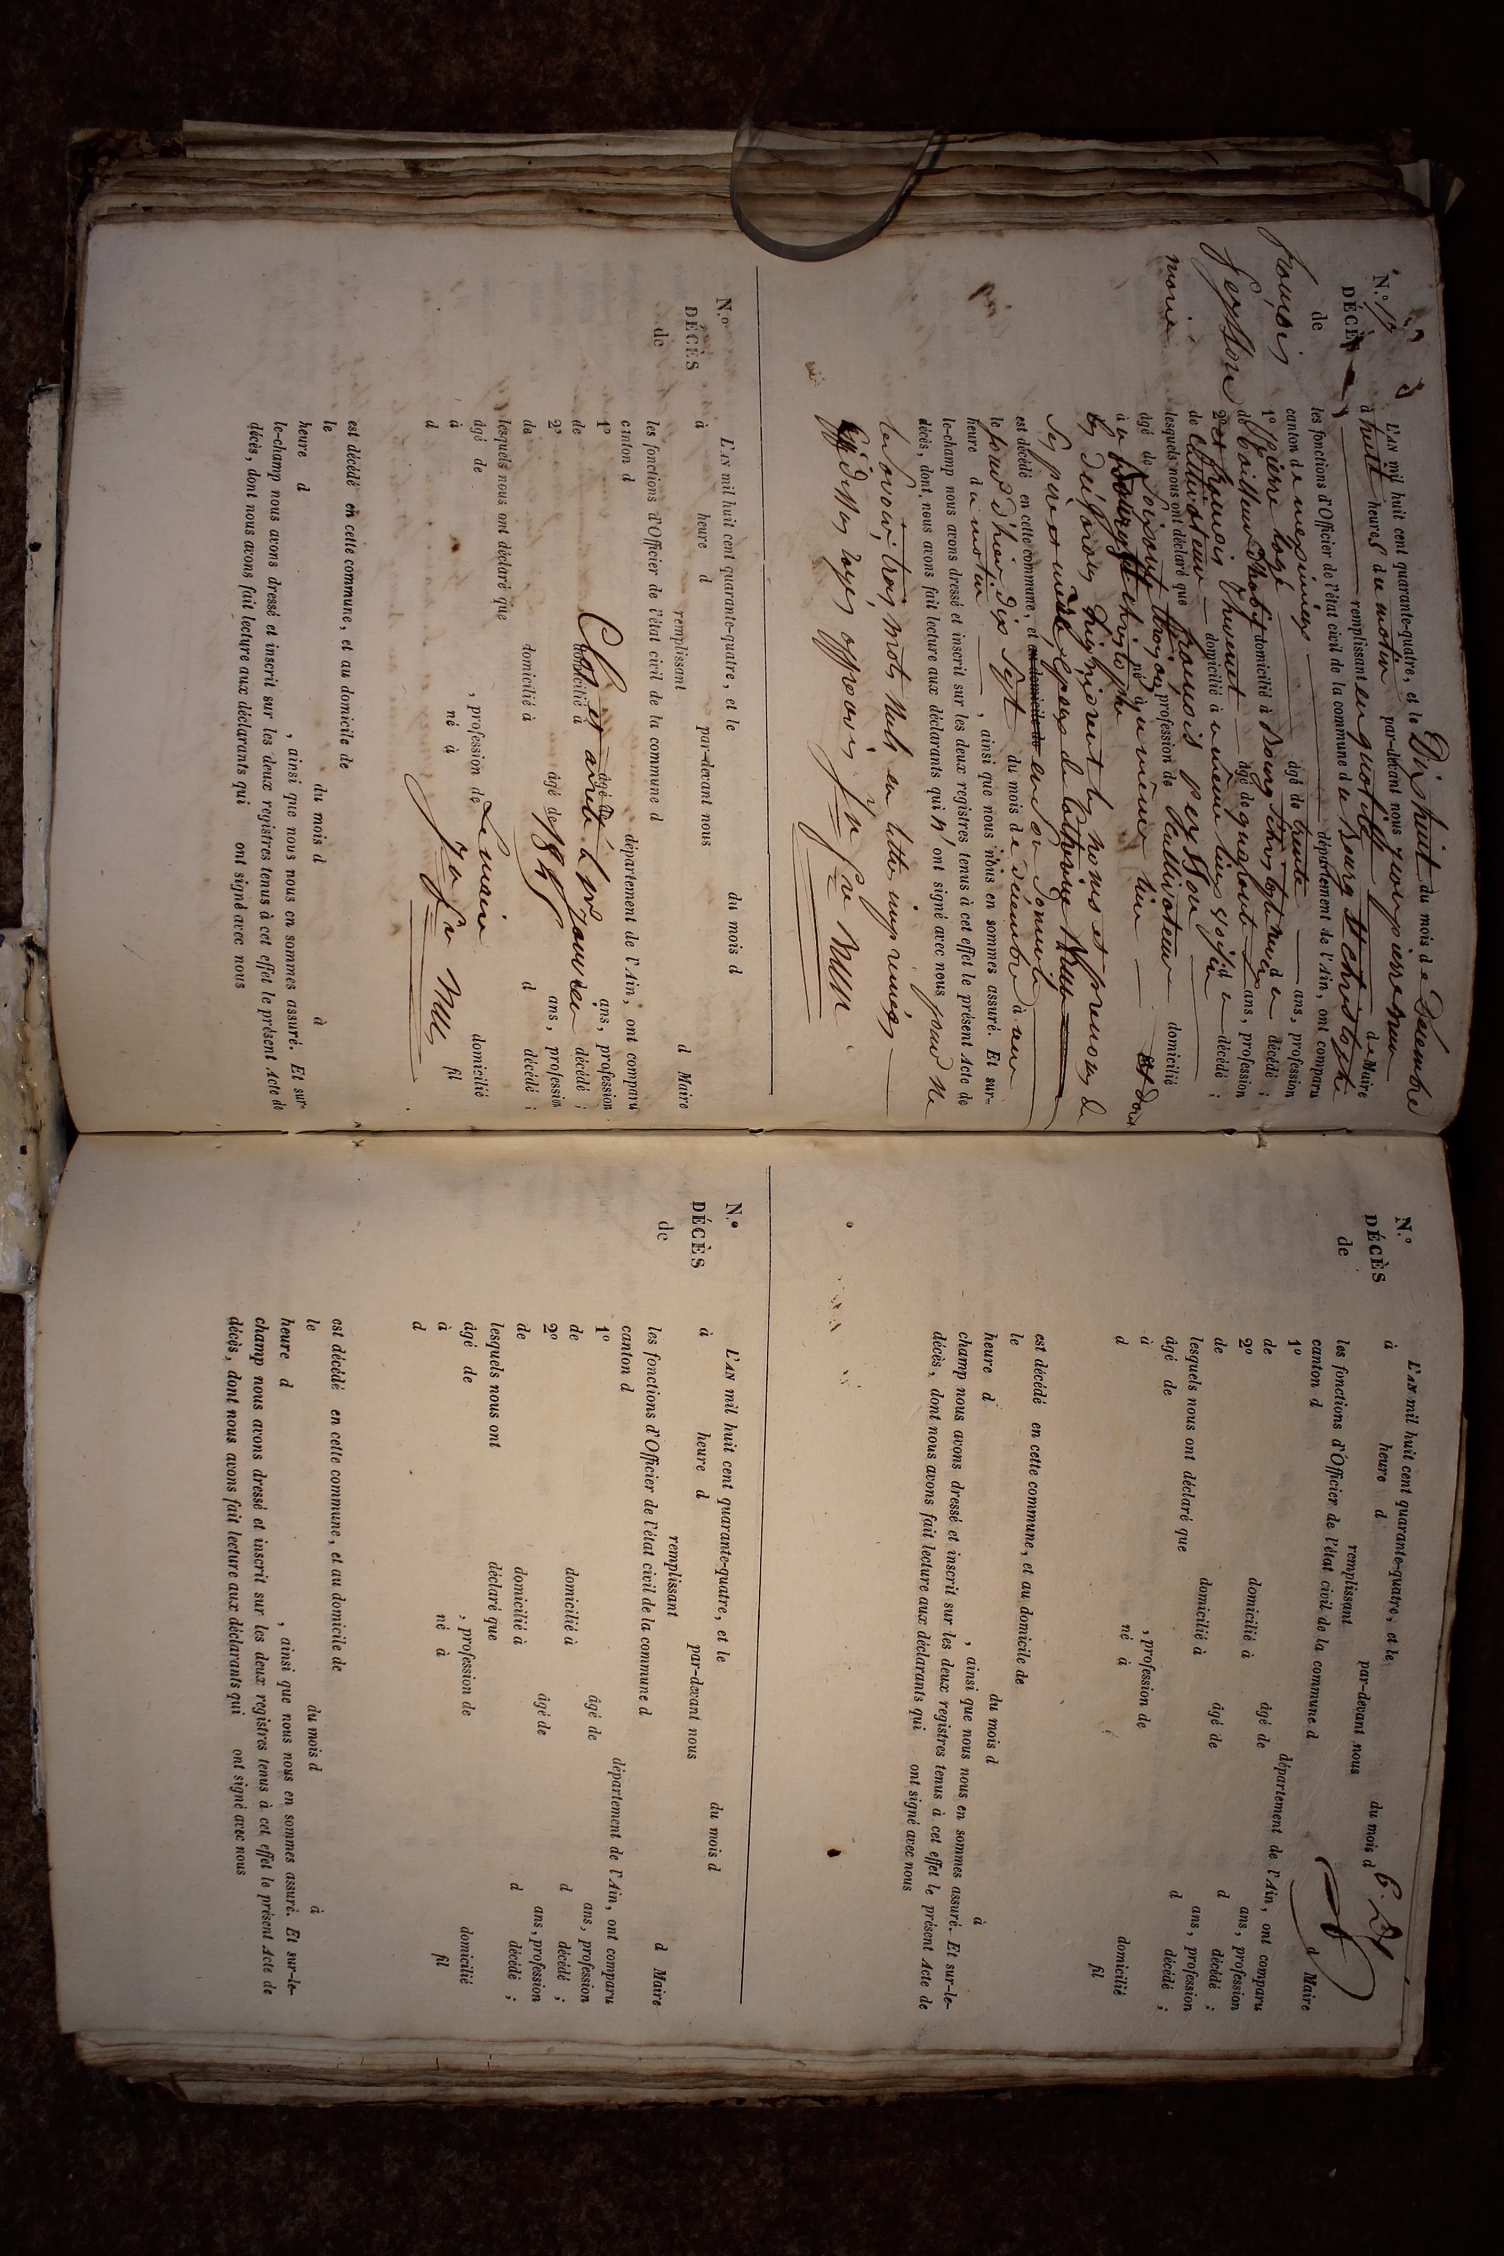 N.º 17
DÉCÈS
de
françois
peysson
marié
L'AN mil huit cent quarante-quatre, et le Dix huit du mois de Décembre
à huit heures du matin par-devant nous
remplissant en qualité de Maire
les fonctions d'Officier de l'état civil de la commune de Bourg St christophe
canton de meximieux département de l'Ain, ont comparu
1º pierre âgé de trente ans, profession
de domicilié à Bourg St christophe décédé ;
2º françois thevenet âgé de quarante ans, profession
de cultivateur domicilié à même lieu du décédé ;
lesquels nous ont déclaré que françois peysson
âgé de soixante trois ans, profession de cultivateur domicilié
à Bourg St christophe né à même lieu
Les père et mère époux de
est décédé en cette commune, et au domicile de en son domicile
le jour d'hier dix sept du mois de décembre à une
heure du matin , ainsi que nous nous en sommes assuré. Et sur-
le-champ nous avons dressé et inscrit sur les deux registres tenus à cet effet le présent Acte de
décès, dont nous avons fait lecture aux déclarants qui n' ont signé avec nous pour ne
le savoir, trois mots nuls en lettres imprimées
N.º
DÉCÈS
de
L'AN mil huit cent quarante-quatre, et le du mois d
à heure d par-devant nous
remplissant d Maire
les fonctions d'Officier de l'état civil de la commune d
canton d département de l'Ain, ont comparu
1º âgé de ans, profession
de domicilié à décédé ;
Clos et arrêté le 1er janvier
2º âgé de ans, profession
1845
de domicilié à d décédé ;
lesquels nous ont déclaré que
Le maire
âgé de , profession de domicilié
à né à fil
d
est décédé en cette commune, et au domicile de
le du mois d à
heure d , ainsi que nous nous en sommes assuré. Et sur-
le-champ nous avons dressé et inscrit sur les deux registres tenus à cet effet le présent Acte de
décès, dont nous avons fait lecture aux déclarants qui ont signé avec nous
N.º
DÉCÈS
de
L'AN mil huit cent quarante-quatre, et le du mois d
à heure d par-devant nous
remplissant d Maire
les fonctions d'Officier de l'état civil de la commune d
canton d département de l'Ain, ont comparu
1º âgé de ans, profession
de domicilié à d décédé ;
2º âgé de ans, profession
de domicilié à d décédé ;
lesquels nous ont déclaré que
âgé de , profession de domicilié
à né à fil
d
est décédé en cette commune, et au domicile de
le du mois d à
heure d , ainsi que nous nous en sommes assuré. Et sur-le-
champ nous avons dressé et inscrit sur les deux registres tenus à cet effet le présent Acte de
décès, dont nous avons fait lecture aux déclarants qui ont signé avec nous
N.º
DÉCÈS
de
L'AN mil huit cent quarante-quatre, et le du mois d
à heure d par-devant nous
remplissant d Maire
les fonctions d'Officier de l'état civil de la commune d
canton d département de l'Ain, ont comparu
1º âgé de ans, profession
de domicilié à d décédé ;
2º âgé de ans, profession
de domicilié à d décédé ;
lesquels nous ont déclaré que
âgé de , profession de domicilié
à né à fil
d
est décédé en cette commune, et au domicile de
le du mois d à
heure d , ainsi que nous nous en sommes assuré. Et sur-le-
champ nous avons dressé et inscrit sur les deux registres tenus à cet effet le présent Acte de
décès, dont nous avons fait lecture aux déclarants qui ont signé avec nous